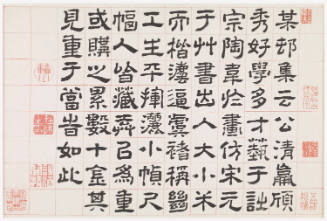 某邨集云公清羸頎
秀好學多才蓺于詩
宗陶韋於畫仿宋元
于艸書出入大小米
而楷灋逼真稱
工生平揮灑小幀尺
幅人皆藏弆㠯為重
或購之累數十金其
見重于當旹如此